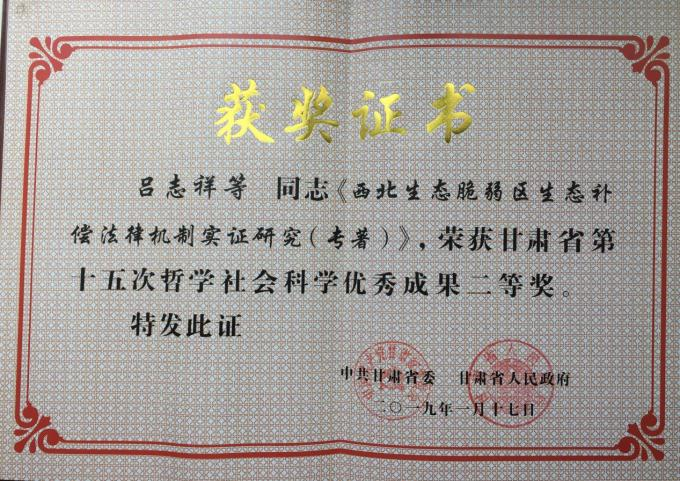 获奖证书
吕志祥等 同志《西北生态脆弱区生态补
偿法律机制实证研究(专著)》,荣获甘肃省第
十五次哲学社会科学优秀成果二等奖。
特发此证
中共甘肃省委 甘肃省人民政府
二〇一九年一月十七日